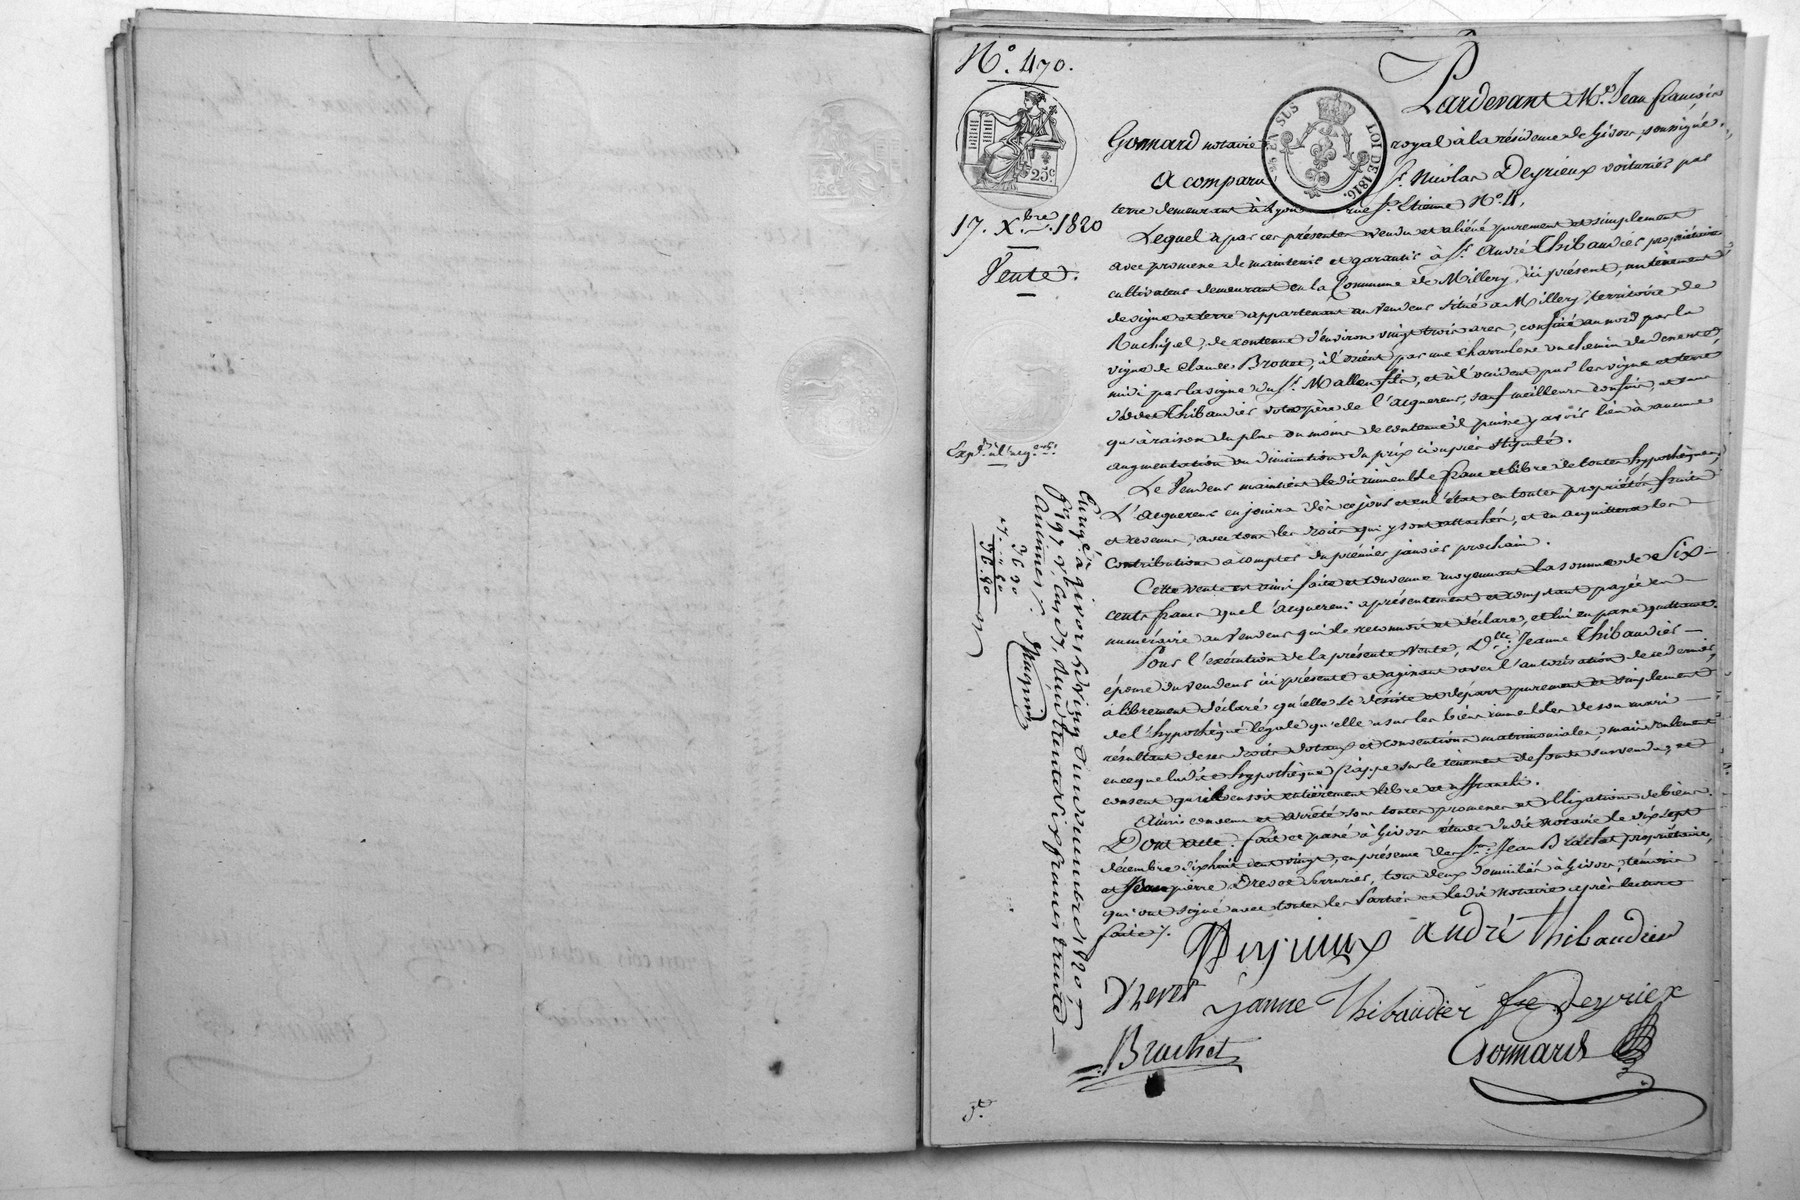 N.° 470.
25.c
EN SUS
LOI DE 1816.
17. X.bre 1820
Vente.
Expd. à l'acq.eur
Pardevant M.e Jean françois
Gonnard notaire royal à la résidence de Givors soussigné.
A comparu S.r Nicolas Deyrieux voiturier par
terre demeurant à Lyon rue S.t Etienne N.° 4,
Lequel a par ces présentes vendu et aliéné purement et simplement
avec promesse de maintenir et garantir à S.r André Thibaudier propriétaire
cultivateur demeurant en la Commune de Millery, ici présent, un tènement
de vigne et terre appartenant au vendeur situé à Millery, territoire de
de contenue d'environ vingt trois ares, confiné au nord par la
vigne de Claude Brottet, à l'orient par une charrière ou chemin de desserte
midi par la vigne du S.r Mallen fils, et à l'occident par les vigne et terre
Thibaudier père de l'acquereur, sauf meilleurs confins, et sans
qu'à raison du plus ou moins de contenue il puisse y avoir lieu à aucune
augmentation ou diminution du prix ci après stipulé.
Le Vendeur maintient ledit immeuble franc et libre de toutes hypothèques,
L'acquereur en jouira dès ce jour et en l'état en toutes propriétés, fruits
et revenus, avec tous les droits qui y sont attachés, et en acquittera les
Contributions à compter du premier janvier prochain.
Cette vente est ainsi faite et convenue moyennant la somme de Six
cents francs que l'acquereur a présentement et comptant payée en
numéraire au Vendeur qui le reconnoit et déclare, et lui en passe quittance.
Pour l'exécution de la présente Vente, D.lle Jeanne Thibaudier
épouse du Vendeur ici présente et agissant avec l'autorisation de ce dernier,
a librement déclaré qu'elle se désiste et départ purement et simplement
de l'hypothèque légale qu'elle a sur les biens immeubles de son mari
résultant de ses droits dotaux et conventions matrimoniales, mais seulement
en ce que ladite hypothèque frappe sur le tènement de fonds survendu, et
consent qu'il en soit entièrement libre et affranchi.
Ainsi convenu et arrêté sous toutes promesses et obligations de biens.
Dont acte. fait et passé à Givors étude dudit notaire le dix sept
décembre dix huit cent vingt, en présence des S.rs Jean Brachet propriétaire,
et Jean pierre Drevet Serrurier, tous deux domiciliés à Givors, témoins
qui ont signé avec toutes les Parties et ledit notaire après lecture
faite ./.
Deyrieux André thibaudier
Drevet Janne thibaudier fe deyrieux
Brachet Gonnard
Enregé à givors le vingt un décembre 1820
f.° 197 v. Case 7, Reçu trente six francs trente
centimes ./.
36 30
36.30
3.e